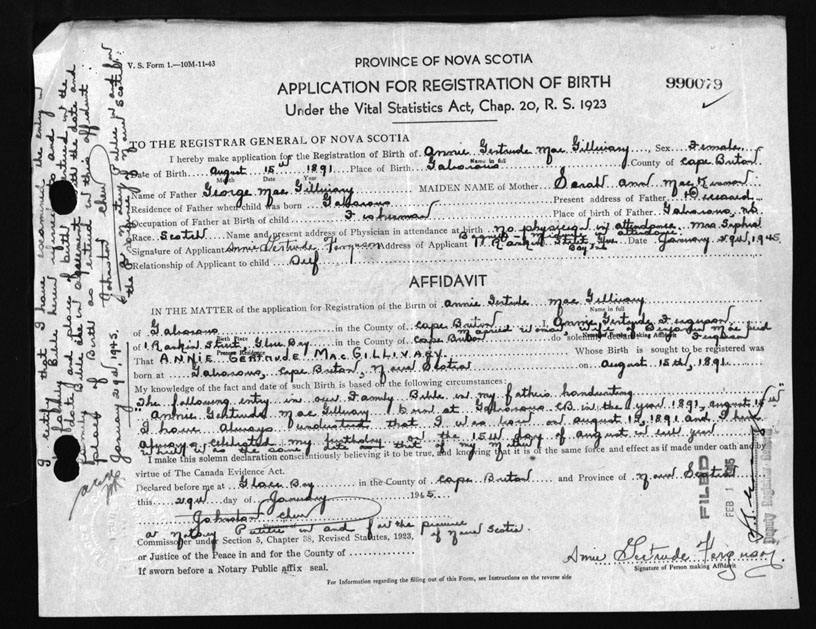 V. S. Form 1.—10M-11-43
PROVINCE OF NOVA SCOTIA
APPLICATION FOR REGISTRATION OF BIRTH
990079
Under the Vital Statistics Act, Chap. 20, R. S. 1923
TO THE REGISTRAR GENERAL OF NOVA SCOTIA
I hereby make application for the Registration of Birth of Annie Gertrude Mac Gillivary Sex Female
Name in full
Date of Birth August 15th 1891 Place of Birth Gabarous County of Cape Breton
Month Date Year
Name of Father George Mac Gillivary MAIDEN NAME of Mother Sarah Ann Mac Kinnon
Residence of Father when child was born Gabarous Present address of Father Deceased
Occupation of Father at Birth of child Fisherman Place of birth of Father Gabarous, NS
Race Scotch Name and present address of Physician in attendance at birth no physician in attendance. Mrs Sophia
midwife in attendance
Signature of Applicant Annie Gertrude Ferguson Address of Applicant 11 Rankin Street, Glace Bay Date January 29th, 1945
Relationship of Applicant to child Self
AFFIDAVIT
IN THE MATTER of the application for Registration of the Birth of Annie Gertrude Mac Gillivary
Name in full
of Gabarous in the County of Cape Breton I, Annie Gertrude Ferguson
Birth Place
married woman, wife of Benjamin
of Rankin Street, Glace Bay in the County of Cape Breton do solemnly Ferguson
Present Residence Person Making Affidavit
That ANNIE GERTRUDE MACGILLIVARY Whose Birth is sought to be registered was
born at Gabarous, Cape Breton, Nova Scotia on August 15th, 1891
My knowledge of the fact and date of such Birth is based on the following circumstances:
"The following entry in our Family Bible in my father's handwriting
"Annie Gertrude Mac Gillivary born at Gabarous CB in the year 1891, August 15th".
I have always understood that I was born on August 15, 1891 and I have
always celebrated my birthday on the 15th day of August in each year
which is the same as that of my Mother
I make this solemn declaration conscientiously believing it to be true, and knowing that it is of the same force and effect as if made under oath and by
virtue of The Canada Evidence Act.
Declared before me at Glace Bay in the County of Cape Breton and Province of Nova Scotia
this 29th day of January 1945
A Notary Public in and for the province
of Nova Scotia.
Commissoner under Section 5, Chapter 38, Revised Statutes, 1923,
or Justice of the Peace in and for the County of
If sworn before a Notary Public affix seal.
Annie Gertrude Ferguson
Signature of Person making Affidavit
For Information regarding the filling out of this Form, see Instructions on the reverse side
I certify that I have examined the entry in
the Family Bible herein referred to and
the date and place of birth entered in the
Family Bible are in agreement with the date and
place of Birth as entered in this affidavit
A Notary Public in and for
the province of Nova Scotia
January 29th 1945.
FILED
FEB 1